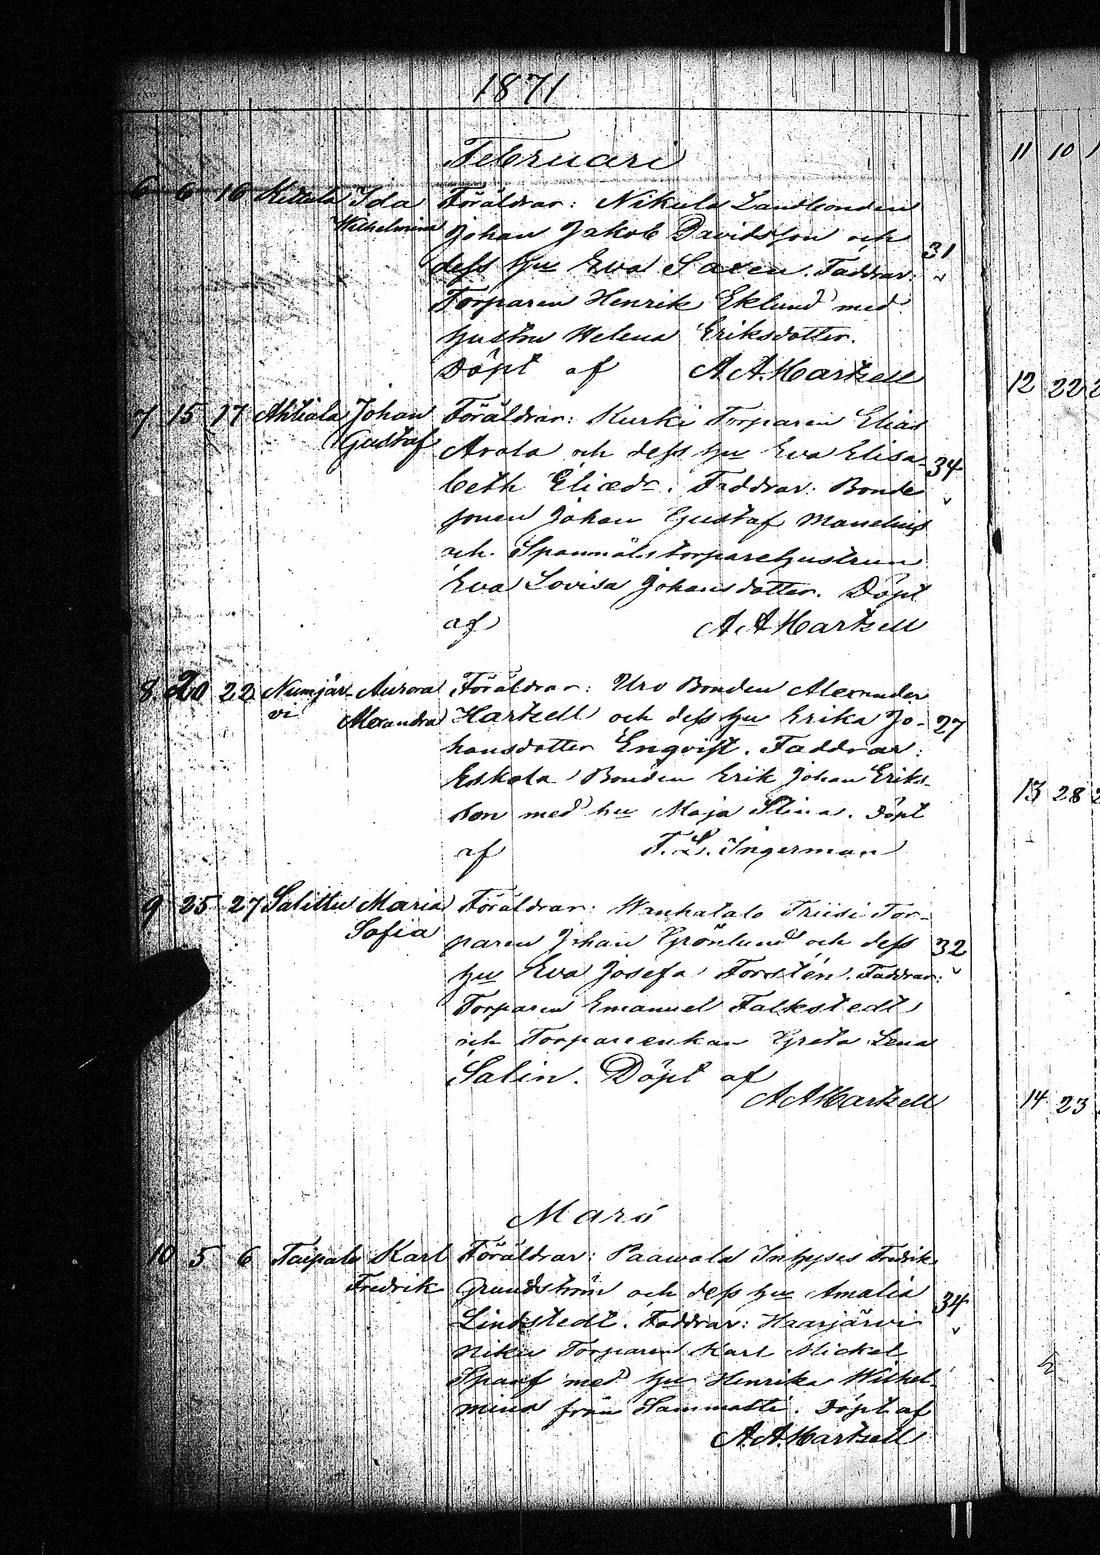 1871
Februari
6 6 10 Kettula Ida Föräldrar: Nikula Landbonden
Wilhelmina Johan Jakob Davidsson och
dess hu Eva Saxen. Faddrar: 31
Torparen Henrik Eklund med
hustru Helena Eriksdotter.
Döpt af A A Hartzell
7 15 17 Ahtiala Johan Föräldrar: Kurki Torparen Elias
Gustaf Arola och dess hu Eva Elisa- 34
beth Eliædr. Faddrar: Bonde
sonen Johan Gustaf Manelius
och Spanmålstorparehustrun
Eva Lovisa Johansdotter. Döpt
af A A Hartzell
8 20 22 Numjär- Aurora Föräldrar: Uro Bonden Alexander
vi Alexandra Hartzell och dess hu Erika Jo- 27
hansdotter Engvist. Faddrar:
Eskola Bonden Erik Johan Eriks-
son med hu Maja Stina. Döpt
af F. L. Ingerman
9 25 27 Salittu Maria Föräldrar: Wanhatalo Triisi Tor-
Sofia paren Johan Grönlund och dess 32
hu Eva Josefa Forstén. Faddrar:
Torparen Emanuel Falkstedt
och Torpareenkan Greta Lena
Salin. Döpt af
A A Hartzell
Mars
10 5 6 Taipale Karl Föräldrar: Paawola Inhyses Fredrik
Fredrik Grundström och dess hu Amalia 34
Lindstedt. Faddrar: Haarjärvi
Niku Torparen Karl Mickel
Spauf med hu Henrika Wilhel-
mina från Sammatti. Döpt af
A. A. Hartzell
11 10 1
12 22 2
13 28 2
14 23